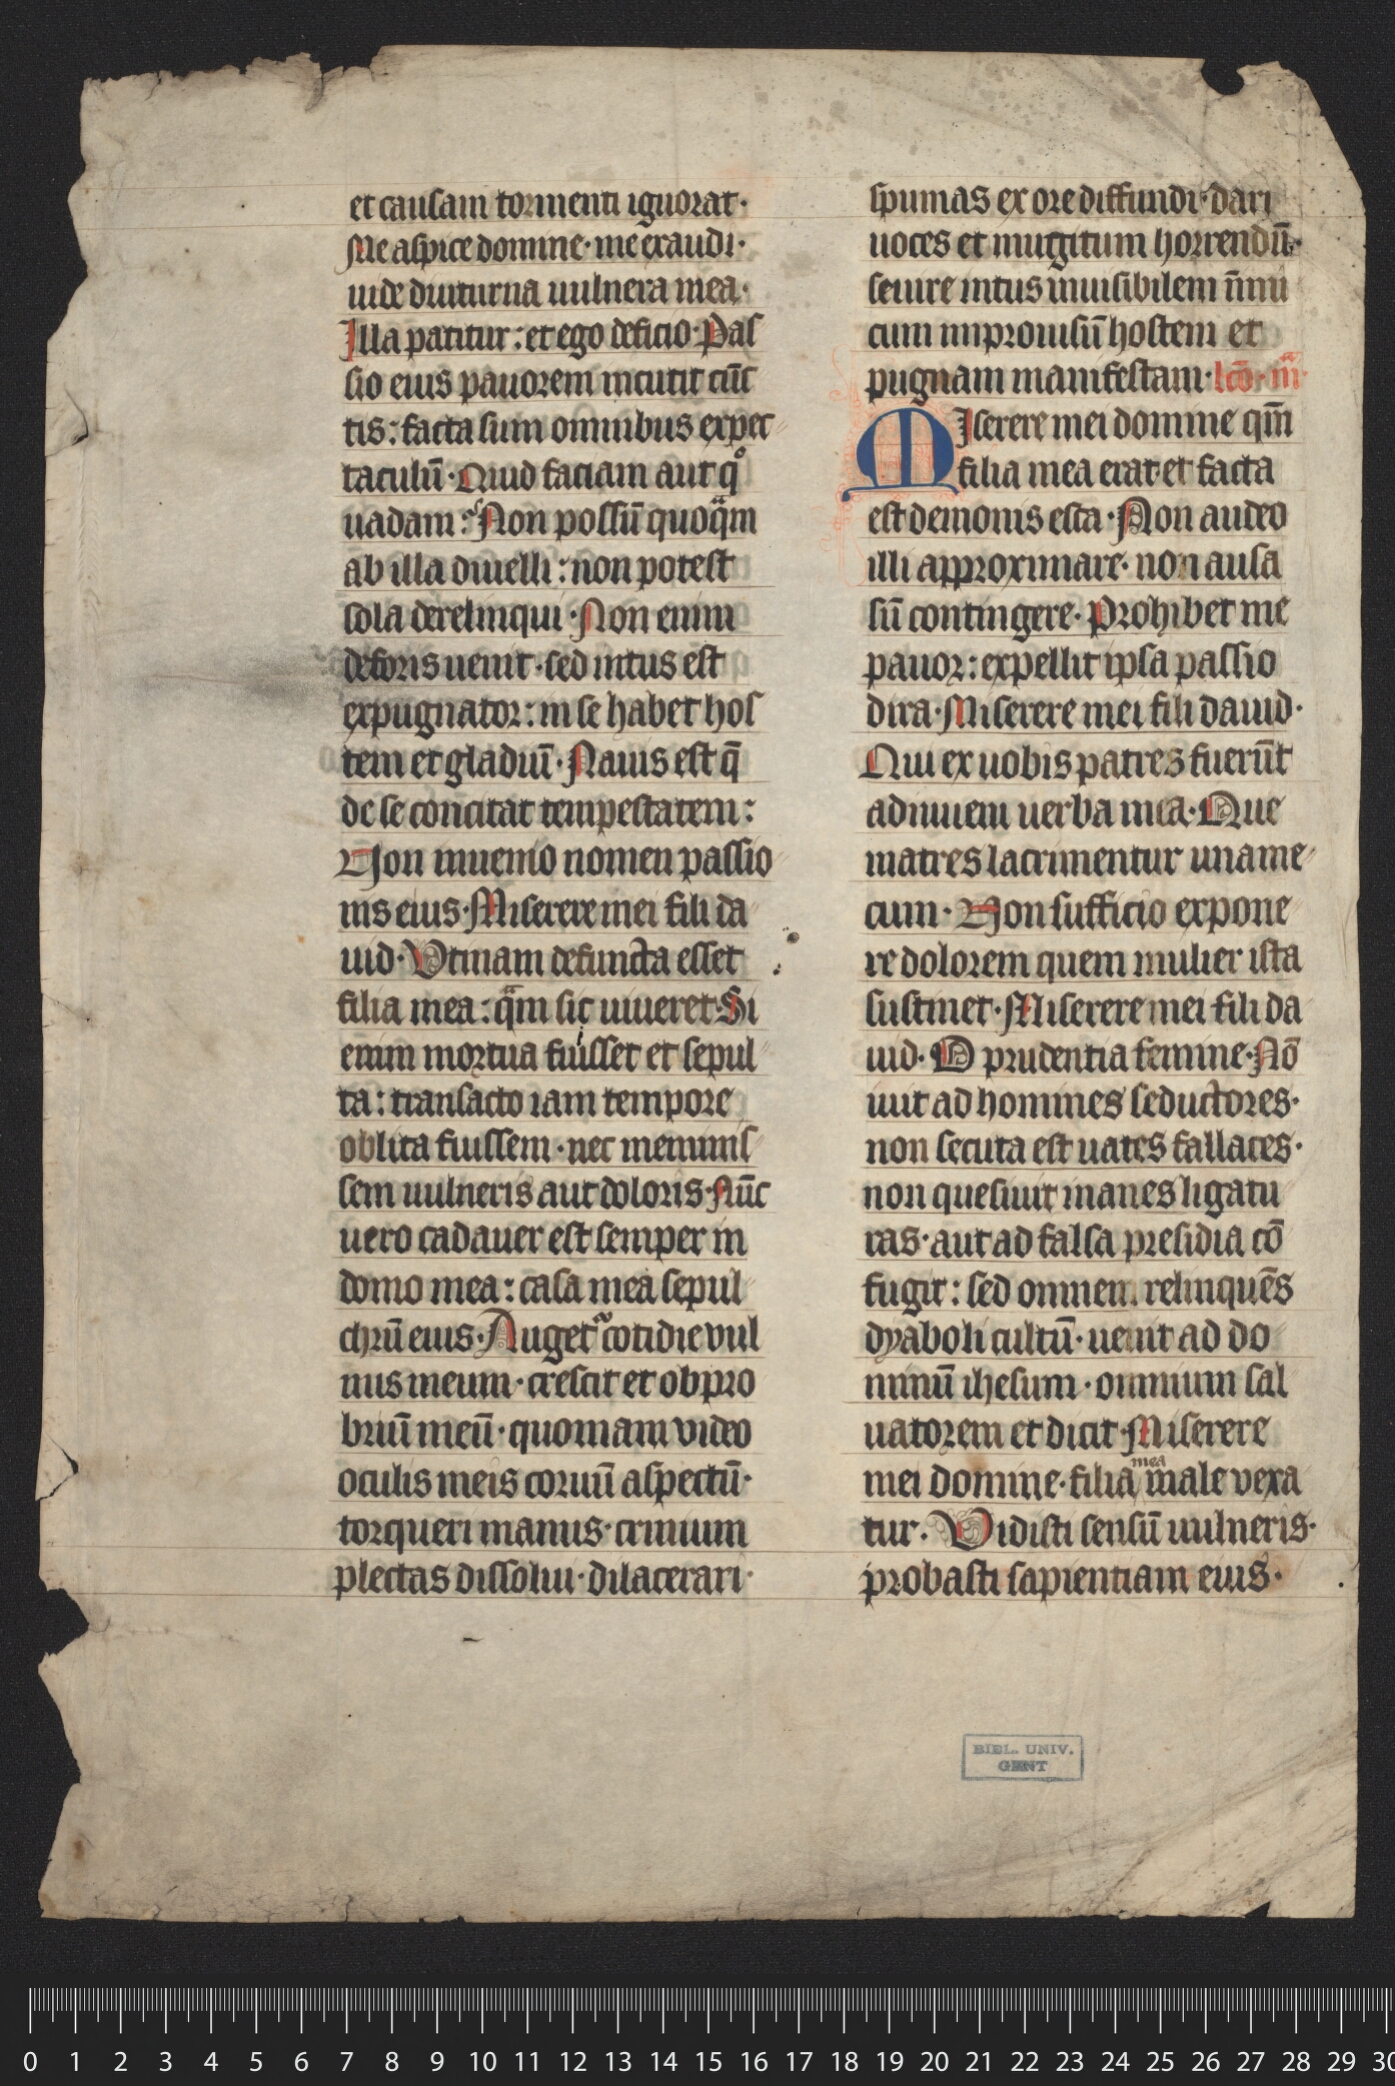 et causam tormenti ignorat·
Me aspice domine· me exaudi·
uide diuturna uulnera mea·
Illa patitur: et ego deficio· Pas
sio eius pauorem incutit cūc
tis: facta sum omnibus expec
taculū· Quid faciam aut qͦ
uadam? Non possū quoqᷓm
ab illa diuelli: non potest
sola derelinqui· Non enim
deforis uenit· sed intus est
expugnator: in se habet hos
tem et gladiū· Nauis est q̄
de se concitat tempestatem:
Non inuenio nomen passio
nis eius· Miserere mei fili da
uid· Vtinam defuncta esset
filia mea: qᷓm sic uiueret· Si
enim mortua fuisset et sepul
ta: transacto iam tempore
oblita fuissem· nec meminis
sem uulneris aut doloris· Nūc
uero cadauer est semper in
domo mea: casa mea sepul
chrū eius· Auget᷑ cotidie vul
nus meum· crescit et obpro
briū meū· quoniam video
oculis meis coruū aspectū·
torqueri manus· crinium
plectas dissolui· dilacerari·
spumas ex ore diffundi· dari
uoces et mugitum horrendū·
seuire intus inuisibilem inimi
cum improuisū hostem et
pugnam manifestam· lcō· iii
Miserere mei domine qm̄
filia mea erat· et facta
est demonis esca· Non audeo
illi approximare· non ausa
sū contingere· Prohibet me
pauor: expellit ipsa passio
dira· Miserere mei fili dauid·
Qui ex uobis patres fuerūt
adiuuent uerba mea· Que
matres lacrimentur una me
cum· Non sufficio expone
re dolorem quem mulier ista
sustinet· Miserere mei fili da
uid· O prudentia femine· Nō
iuit ad homines seductores·
non secuta est uates fallaces·
non quesiuit inanes ligatu
ras· aut ad falsa presidia cō
fugit: sed omnem relinquēs
dyaboli cultū· uenit ad do
minū ihesum· omnium sal
uatorem et dicit· Miserere
mei domine· filia mea male vexa
tur· Vidisti sensū uulneris·
probasti sapientiam eius·
BIBL. UNIV.
GENT
0 1 2 3 4 5 6 7 8 9 10 11 12 13 14 15 16 17 18 19 20 21 22 23 24 25 26 27 28 29 30